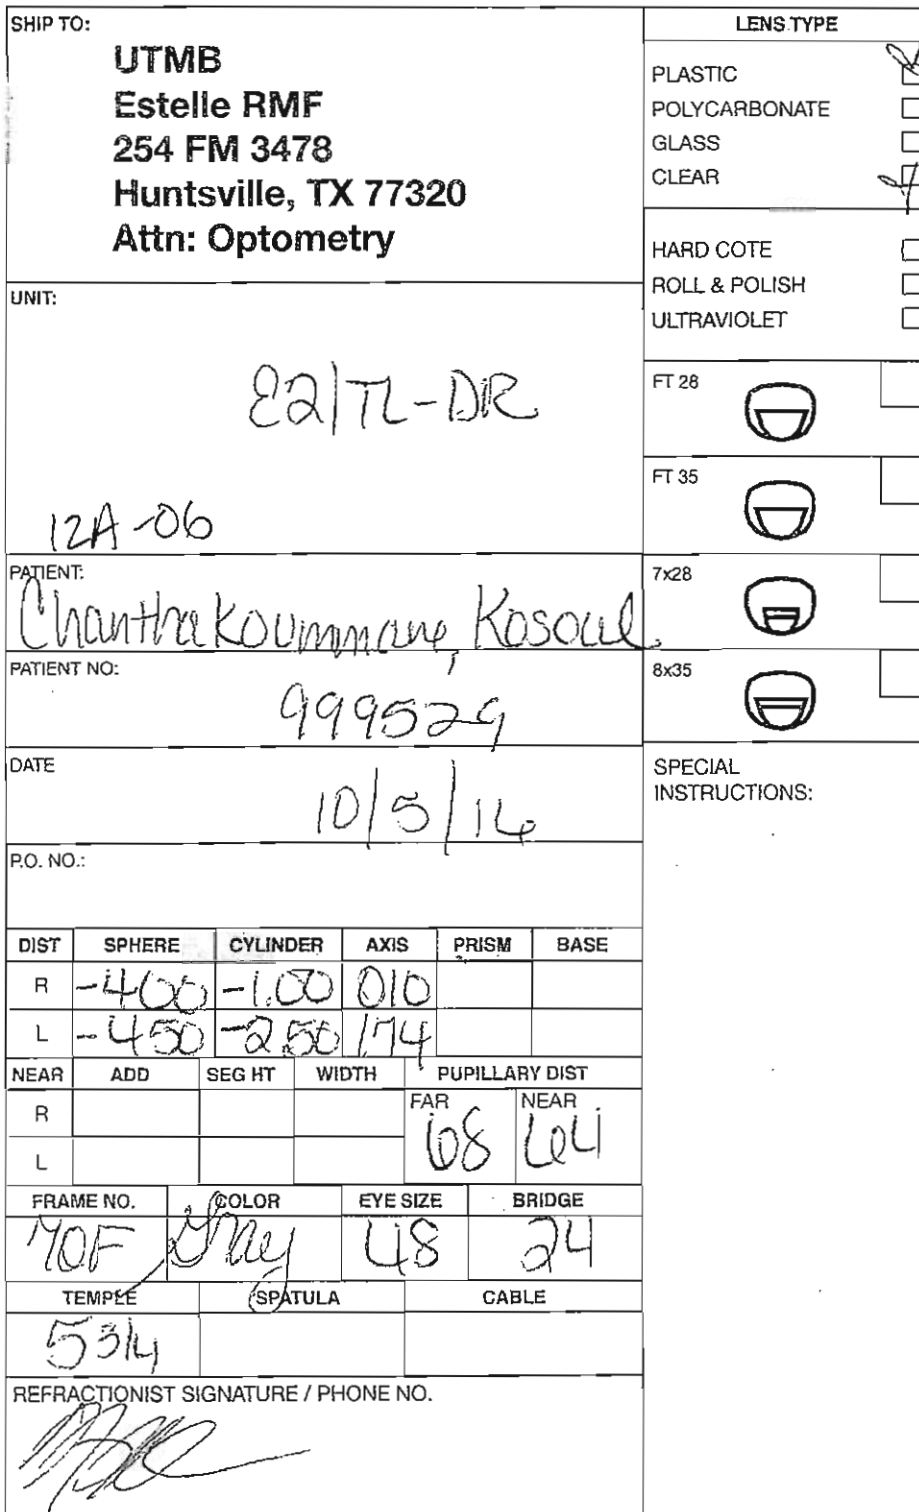 SHIP TO:
UTMB
Estelle RMF
254 FM 3478
Huntsville, TX 77320
Attn: Optometry
UNIT:
E2/TL-DR
12A-06
PATIENT:
Chanthakoummane, Kosoul
PATIENT NO:
999529
DATE
10/5/16
P.O. NO.:
DIST SPHERE CYLINDER AXIS PRISM BASE
R -400 -1.00 010
L -450 -2.50 174
NEAR ADD SEG HT WIDTH PUPILLARY DIST
FAR NEAR
R 68 64
L
FRAME NO. COLOR EYE SIZE BRIDGE
70F Gray 48 24
TEMPLE SPATULA CABLE
5 3/4
REFRACTIONIST SIGNATURE / PHONE NO.
LENS TYPE
PLASTIC
POLYCARBONATE
GLASS
CLEAR
HARD COTE
ROLL & POLISH
ULTRAVIOLET
FT 28
FT 35
7x28
8x35
SPECIAL
INSTRUCTIONS: